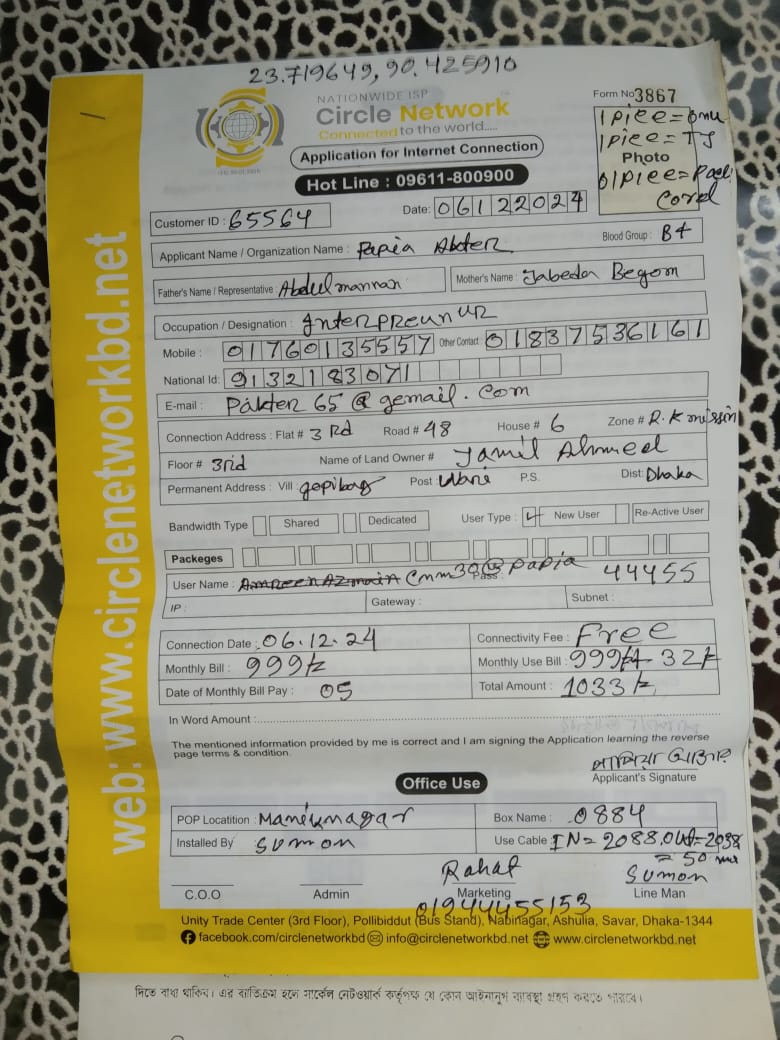 23.719649, 90.425910
NATIONWIDE ISP
Circle Network
Connected to the world.....
Application for Internet Connection
Hot Line : 09611-800900
Form No 3867
1 piece = onu
1 piece = TJ
Photo
Customer ID : 65564
Date: 06122024
Applicant Name / Organization Name : Papia Akter
Blood Group : B+
Father's Name / Representative : Abdul mannan
Mother's Name : Jabeda Begom
Occupation / Designation : Interpreunur
Mobile : 01760135557 Other Contact 01837536161
National Id: 9132183071
E-mail : Pakter 65@gemail.com
Connection Address : Flat # 3 Rd Road # 48 House # 6 Zone # R.K mission
Floor # 3rid Name of Land Owner # Jamil Ahmeed
Permanent Address : Vill gopibag Post Wari P.S. Dist: Dhaka
Bandwidth Type Shared Dedicated User Type : New User Re-Active User
Packeges
User Name : Cnm39@papia Pass : 44455
IP : Gateway : Subnet :
Connection Date : 06.12.24 Connectivity Fee : Free
Monthly Bill : 999/- Monthly Use Bill : 999/+ 32/-
Date of Monthly Bill Pay : 05 Total Amount : 1033/-
In Word Amount :
The mentioned information provided by me is correct and I am signing the Application learning the reverse
page terms & condition.
পাপিয়া আক্তার
Applicant's Signature
Office Use
POP Locatition : Maniknagar Box Name : 0884
Installed By Sumon Use Cable IN= 2088, Out=2038
= 50 m
Rahat Sumon
C.O.O Admin Marketing Line Man
01944455153
Unity Trade Center (3rd Floor), Pollibiddut (Bus Stand), Nabinagar, Ashulia, Savar, Dhaka-1344
facebook.com/circlenetworkbd info@circlenetworkbd.net www.circlenetworkbd.net
web: www.circlenetworkbd.net
দিতে বাধ্য থাকিব। এর ব্যতিক্রম হলে সার্কেল নেটওয়ার্ক কর্তৃপক্ষ যে কোন আইনানুগ ব্যবস্থা গ্রহণ করতে পারবে।